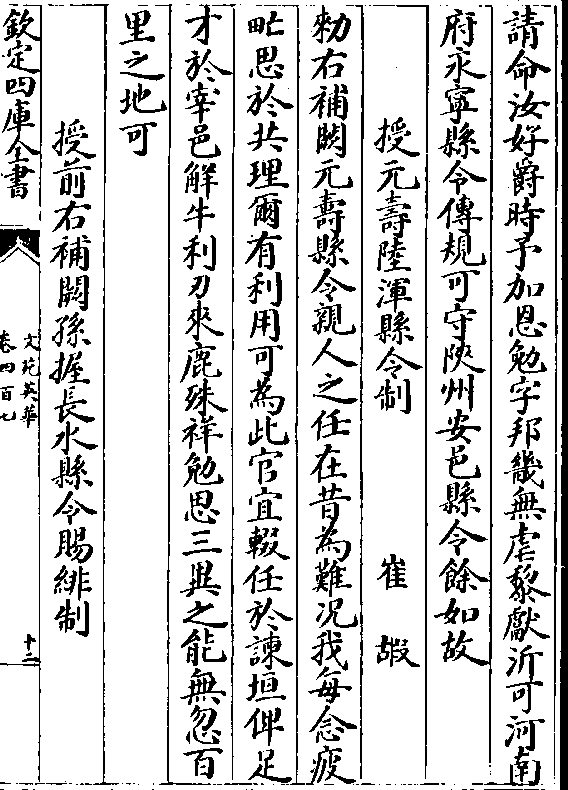 請命汝好爵時予加恩勉字邦畿無虐黎獻沂可河南
府永寧縣令傳規可守陜州安邑縣令餘如故
授元壽陸渾縣令制　崔嘏
勑右補闕元壽縣令親人之任在昔為難况我每念疲
甿思於共理爾有利用可為此官宜輟任於諫垣俾足
才於宰邑解牛利刃來鹿殊祥勉思三異之能無忽百
里之地可
授前右補闕孫握長水縣令賜緋制
欽定四庫全書
文苑英華
卷四百七
十二